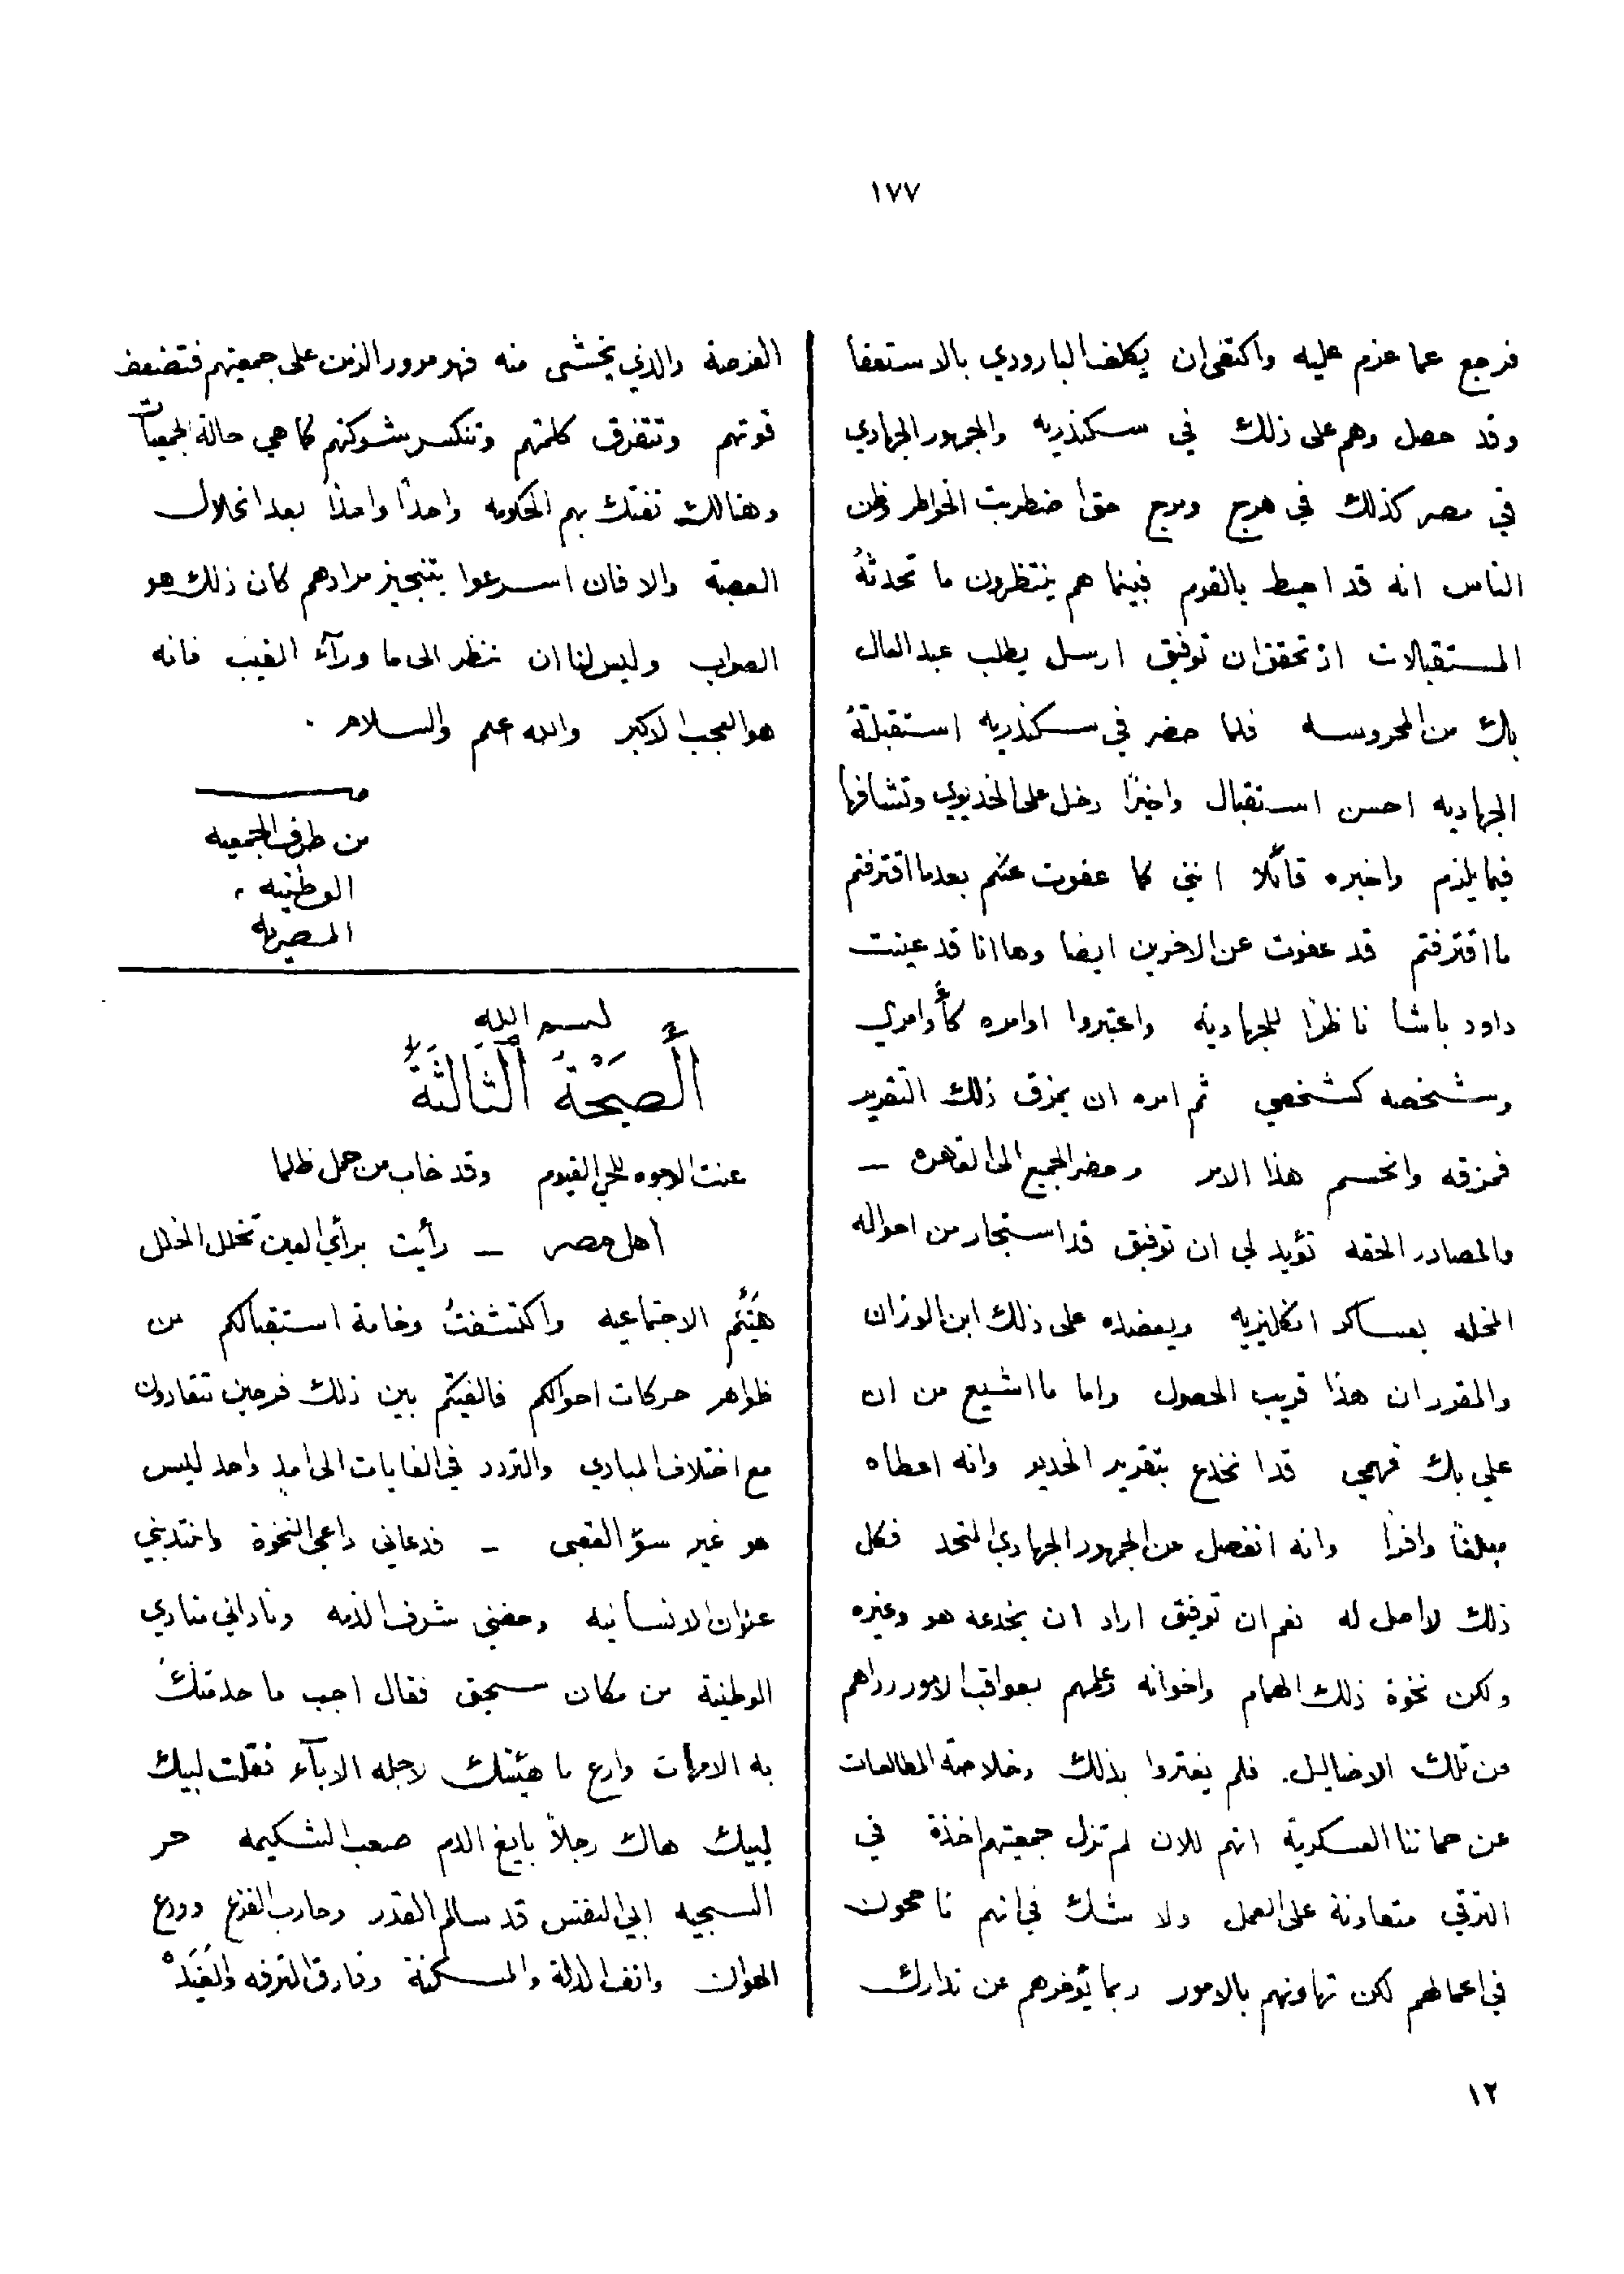 ١٧٧
فرجع عما عزم عليه واكتفى ان يكلف البارودي بالاستعفا
وقد حصل وهم على ذلك في سكندريه والجمهور الجهادي
في مصر كذلك في هرج ومرج حتى اضطربت الخواطر وظن
الناس انه قد احيط بالقوم فبينما هم ينتظرون ما تحدثهُ
المستقبلات اذ تحقق ان توفيق ارسل يطلب عبد العال
بك من المحروسه فلما حضر في سكندريه استقبلتهُ
الجهاديه احسن استقبال واخيرًا دخل على الخديوي وتشافها
فيما يلزم واخبره قائلا انني كما عفوت عنكم بعدما اقترفتم
ما اقترفتم قد عفوت عن الاخرين ايضا وها انا قد عينت
داود باشا ناظرًا للجهادية واعتبروا اوامره كأوامري
وشخصه كشخصي ثم امره ان يمزق ذلك التقرير
فمزقه وانحسم هذا الامر وحضر الجميع الى القاهره –
والمصادر الحقه تؤيد لي ان توفيق قد استجار من احواله
المخله بعساكر انكليزيه ويعضده على ذلك ابن الوزان
والمقرر ان هذا قريب الحصول واما ما اشيع من ان
علي بك فهمي قد انخدع بتقرير الخديو وانه اعطاه
مبلغًا وافرًا وانه انفصل من الجمهور الجهادي المتحد فكل
ذلك لا اصل له نعم ان توفيق اراد ان يخدعه هو وغيره
ولكن نخوة ذلك الهمام واخوانه وعلمهم بعواقب الامور رداهم
من تلك الاضاليل. فلم يغتروا بذلك وخلاصة المطالعات
عن حماتنا العسكرية انهم للان لم تزل جمعيتهم اخذة في
الترقي متعاونة على العمل ولا شك في انهم ناجحون
في اعمالهم لكن تهاونهم بالامور ربما يُوخرهم عن تدارك
الفرصة والذي يخشى منه فهو مرور الزمن على جمعيتهم فتضعف
قوتهم وتتفرق كلمتهم وتنكسر شوكتهم كما هي حالة الجمعيات
وهنالك تفتك بهم الحكومه واحدًا واحدًا بعد انحلال
العصبة والا فان اسرعوا بتنجيز مرادهم كان ذلك هو
الصواب وليس لنا ان ننظر الى ما ورآء الغيب فانه
هو العجب الاكبر والله اعلم والسلام .
من طرف الجمعيه
الوطنيه
المصريه
بسم الله
أَلصَّيْحَةُ الثَّالثَةُ
عنت الوجوه للحي القيوم وقد خاب من حمل ظلما
أهل مصر – رأيت برأي العين تخلل الخلل
هيئتكم الاجتماعيه واكتشفتُ وخامة استقبالكم من
ظواهر حركات احوالكم فالفيتكم بين ذلك فرحين تتقادون
مع اختلاف المبادي والتردد في الغايات الى امدٍ واحد ليس
هو غير سؤ العقبى – فدعاني داعي النخوة وانتدبني
عنوان الانسانيه وحضني شرف الذمه وناداني منادي
الوطنية من مكان سحيق فقال اجب ما خدمتكَ
به الامهات وارع ما هيئتك لاجله الابآء فقلت لبيك
لبيك هاك رجلاً بايع الدم صعب الشكيمه حر
السجيه ابي النفس قد سالم القدر وحارب الفزع وودع
الهوان وانف الذلة والمسكنة وفارق الترفه والغَيَدْ
١٢